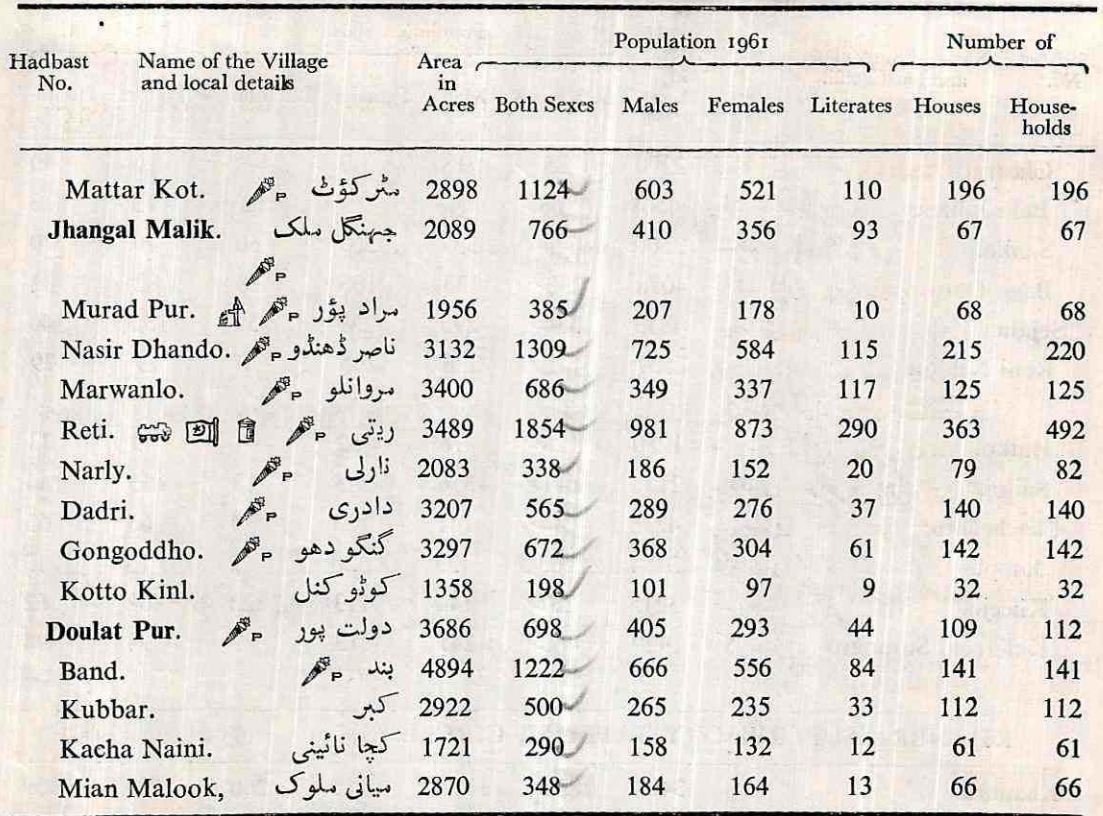 Population 1961 Number of
Hadbast No. Name of the Village and local details Area in Acres Both Sexes Males Females Literates Houses House-holds
Mattar Kot. P مٹر کؤٹ 2898 1124 603 521 110 196 196
Jhangal Malik. جہنگل ملک 2089 766 410 356 93 67 67
P
Murad Pur. P مراد پؤر 1956 385 207 178 10 68 68
Nasir Dhando. P ناصر ڈھنڈو 3132 1309 725 584 115 215 220
Marwanlo. P مروانلو 3400 686 349 337 117 125 125
Reti. P ریتی 3489 1854 981 873 290 363 492
Narly. P نارلی 2083 338 186 152 20 79 82
Dadri. P دادری 3207 565 289 276 37 140 140
Gongoddho. P گنگو دھو 3297 672 368 304 61 142 142
Kotto Kinl. کوٹو کنل 1358 198 101 97 9 32 32
Doulat Pur. P دولت پور 3686 698 405 293 44 109 112
Band. P بند 4894 1222 666 556 84 141 141
Kubbar. کبر 2922 500 265 235 33 112 112
Kacha Naini. کچا نائینی 1721 290 158 132 12 61 61
Mian Malook, میانی ملوک 2870 348 184 164 13 66 66